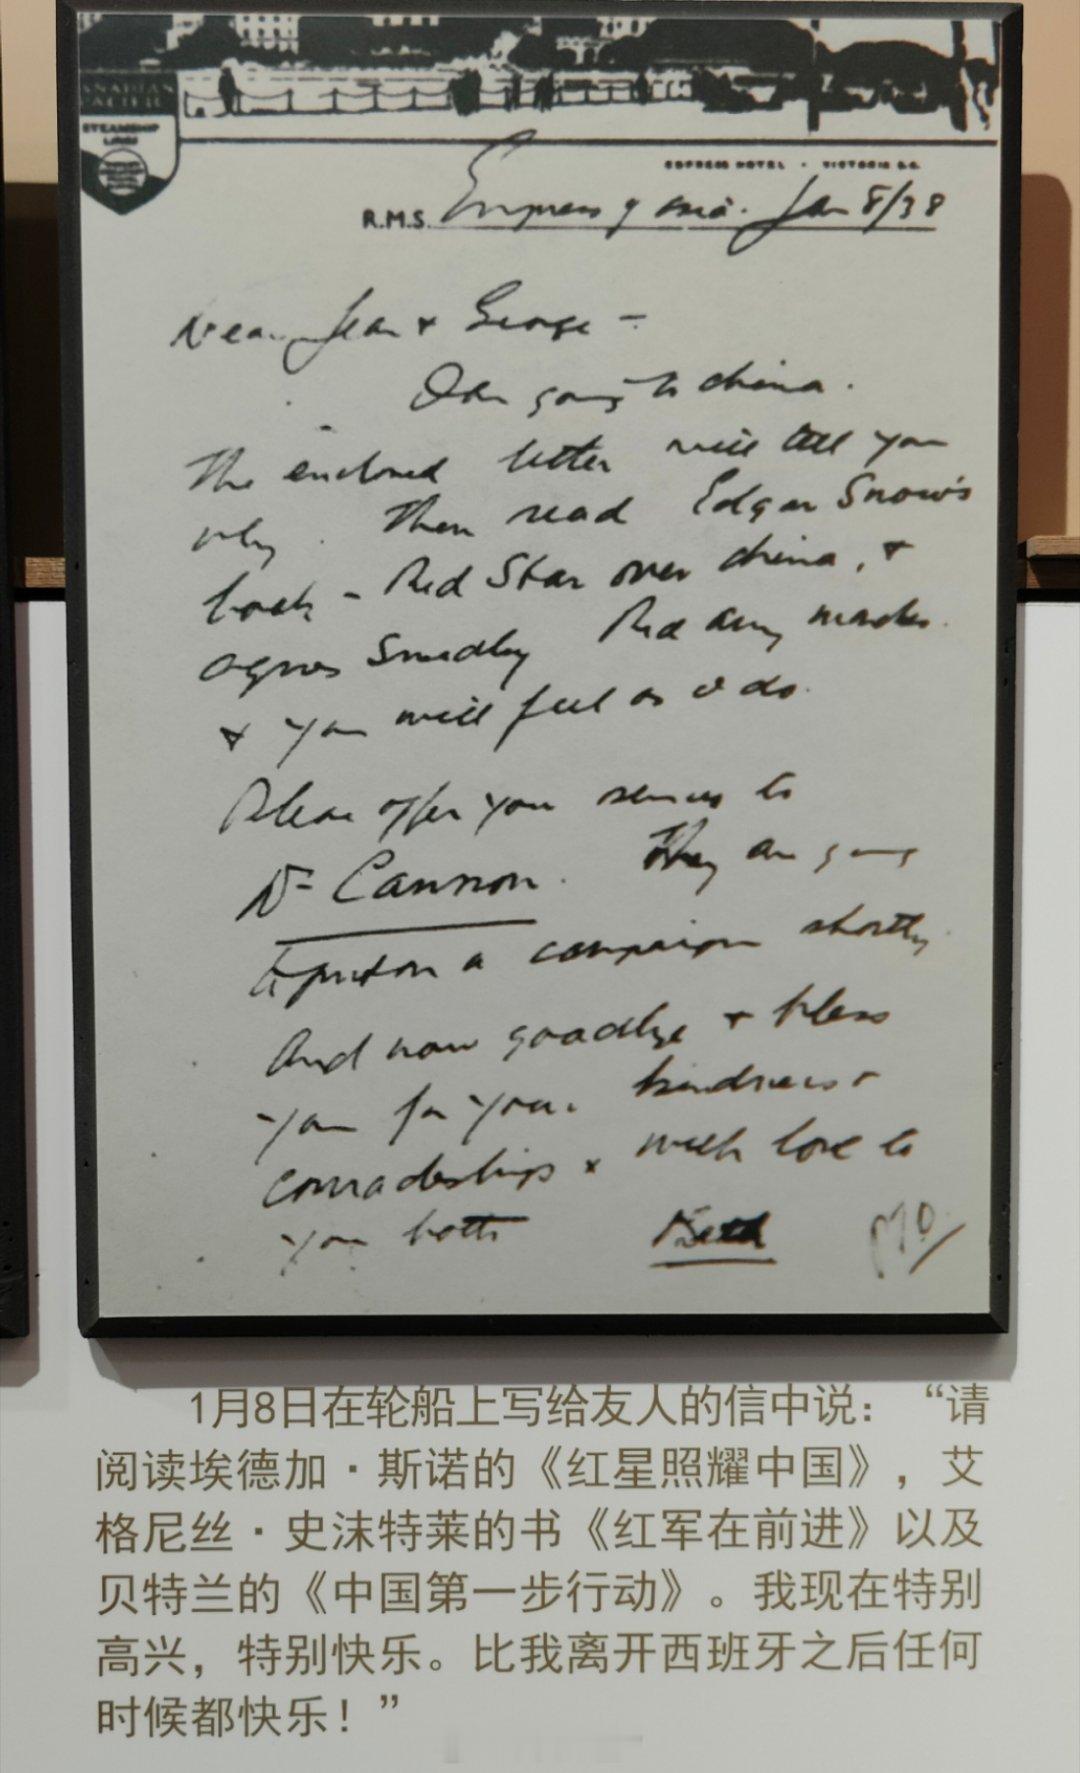 ANADIAN
PACIFIC
STEAMSHIP
LINES
EMPRESS HOTEL · VICTORIA B.C.
R.M.S. Empress of Asia. Jan 8/38
Dear Jean + George -
I am going to China.
The enclosed letter will tell you
why. Then read Edgar Snow's
book - Red Star over China, +
Agnes Smedley Red Army marches
+ you will feel as I do.
Please offer your services to
Dr Cannon. They are going
to put on a campaign shortly
And now goodbye + bless
you for your kindness +
comradeship + with love to
you both Beth
1月8日在轮船上写给友人的信中说：“请
阅读埃德加·斯诺的《红星照耀中国》，艾
格尼丝·史沫特莱的书《红军在前进》以及
贝特兰的《中国第一步行动》。我现在特别
高兴，特别快乐。比我离开西班牙之后任何
时候都快乐！”